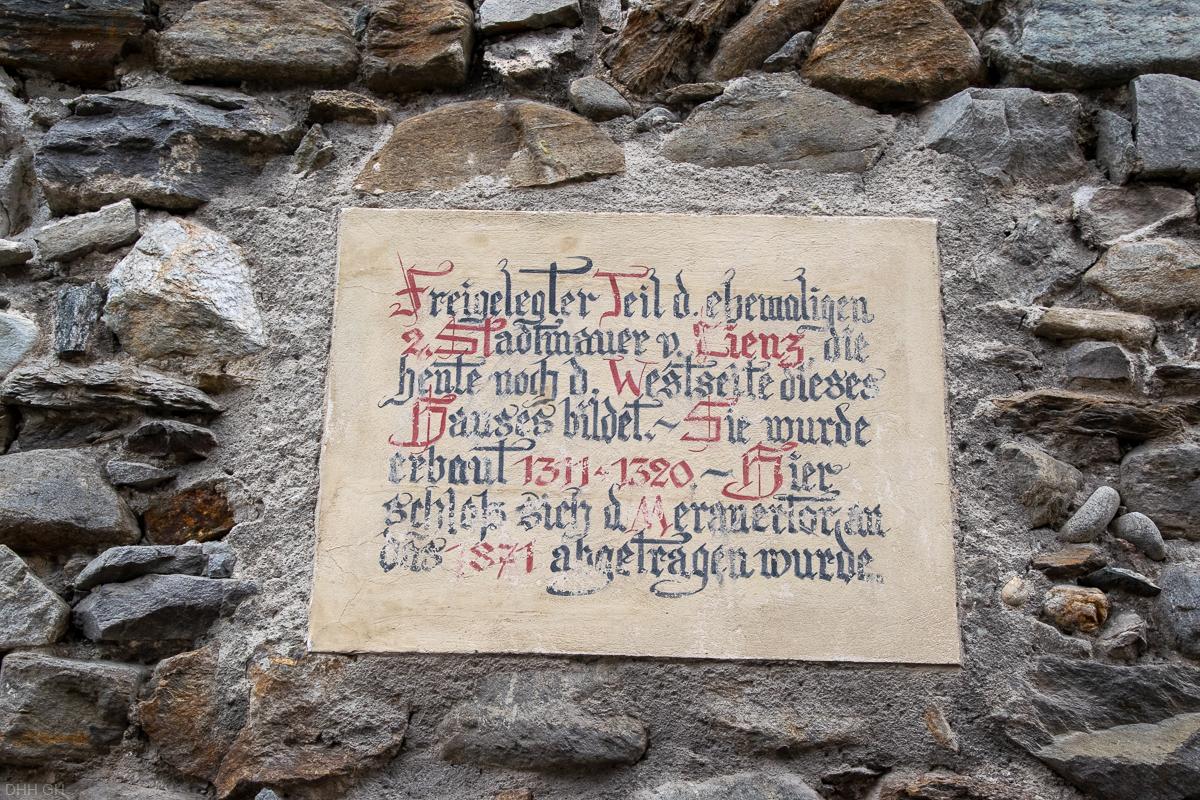 Freigelegter Teil d. ehemaligen
2. Stadtmauer v. Lienz, die
heute noch d. Westseite dieses
Hauses bildet.~ Sie wurde
erbaut 1311-1320.~ Hier
schloß sich d. Meranertor an
das 1871 abgetragen wurde.
DHH GH